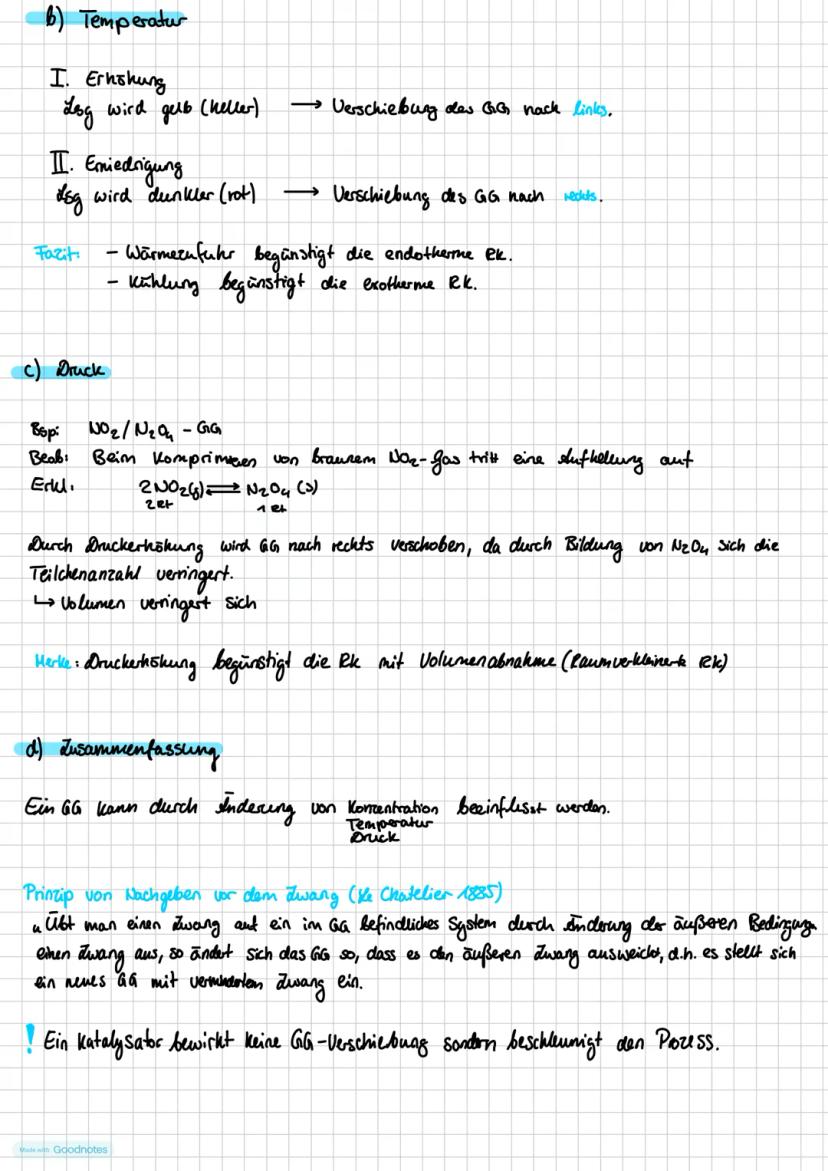 b) Temperatur
I. Erhöhung
Lsg wird gelb (heller) → Verschiebung des GG nach links.
II. Erniedrigung
Lsg wird dunkler (rot) → Verschiebung des GG nach rechts.
Fazit: - Wärmezufuhr begünstigt die endotherme Rk.
- Kühlung begünstigt die exotherme Rk.
c) Druck
Bsp: NO₂/N₂O₄ - GG
Beob: Beim Komprimieren von braunem NO₂-gas tritt eine Aufhellung auf
Erkl: 2NO₂(g) ⇌ N₂O₄ (s)
Durch Druckerhöhung wird GG nach rechts verschoben, da durch Bildung von N₂O₄ sich die
Teilchenanzahl verringert.
↳ Volumen verringert sich
Merke: Druckerhöhung begünstigt die Rk mit Volumenabnahme (Raumverkleinerte Rk)
d) Zusammenfassung
Ein GG kann durch Änderung von Konzentration beeinflusst werden.
Temperatur
Druck
Prinzip von Nachgeben vor dem Zwang (Le Chatelier 1885)
„Übt man einen Zwang auf ein im GG befindliches System durch Änderung der äußeren Bedingung
einen Zwang aus, so ändert sich das GG so, dass es den äußeren Zwang ausweicht, d.h. es stellt sich
ein neues GG mit verminderten Zwang ein.
! Ein Katalysator bewirkt keine GG-Verschiebung sondern beschleunigt den Prozess.
Made with Goodnotes